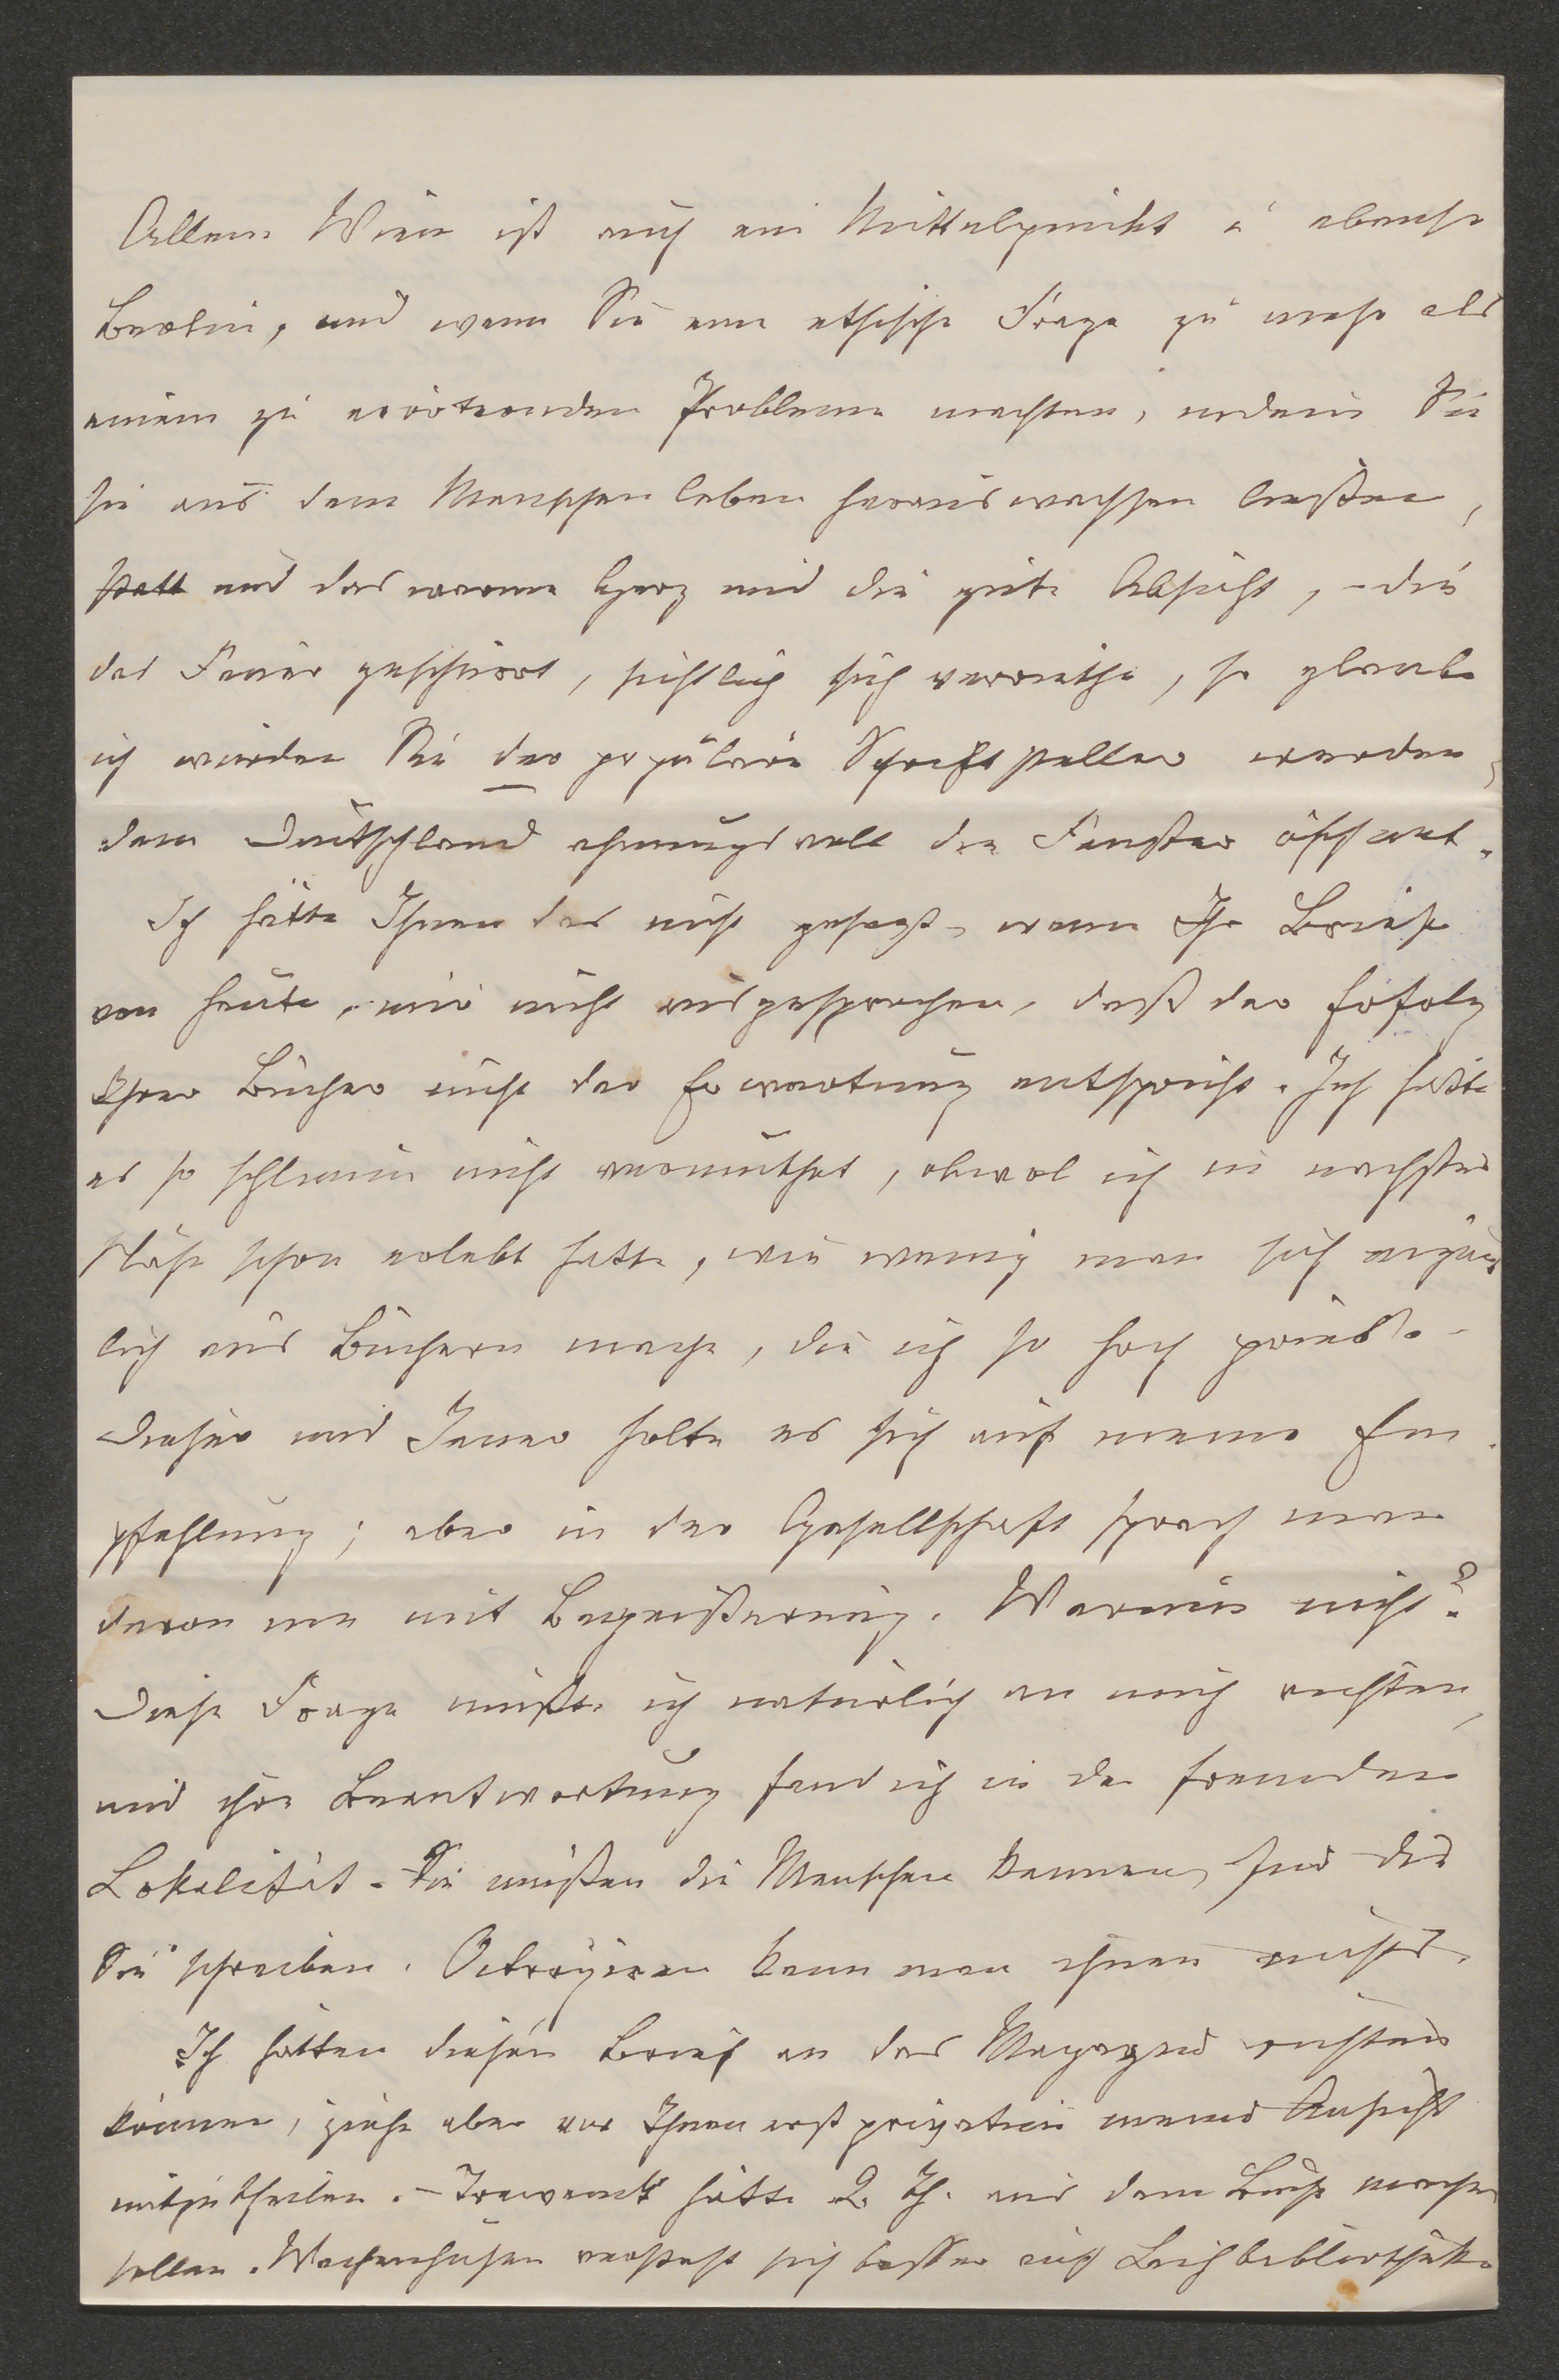 Allein Wien ist auch ein Mittelpunkt u ebenso
Berlin, und wenn Sie eine ethische Frage zu mehr als
einem zu erörternden Probleme machten, indem Sie
sie aus dem Menschenleben herauswachsen ließen,
statt und das warme Herz und die gute Absicht, – die
das Feuer geschürt, sichtlich sich verriethe, so glaube
ich würden Sie der populäre Schriftsteller werden,
dem Deutschland ahnungsvoll die Fenster öffnet.
Ich hätte Ihnen das nicht gesagt, wenn Ihr Brief
von heute, mir nicht ausgesprochen, daß der Erfolg
Ihrer Bücher nicht der Erwartung entspricht. Ich hätte
es so schlimm nicht vermuthet, obwol ich in nächster
Nähe schon erlebt hatte, wie wenig man sich eigent
lich aus Büchern mache, die ich so hoch prieß. –
Dieser und Jener holte es sich auf meine Em
pfehlung; aber in der Gesellschaft sprach man
davon nie mit Begeisterung. Warum nicht?
Diese Frage mußte ich natürlich an mich richten,
und ihre Beantwortung fand ich in der fremden
Lokalität. Sie müßen die Menschen kennen, für die
Sie schreiben. Octroyiren kann man ihnen nichts.
Ich hätten diesen Brief an das Magazin richten
können, ziehe aber vor Ihnen erst privatim meine Ansicht
mitzutheilen. – Trewendt hätte 2 Th. aus dem Buche machen
sollen. Wachenhusen versteht sich besser auf Leihbibliotheke